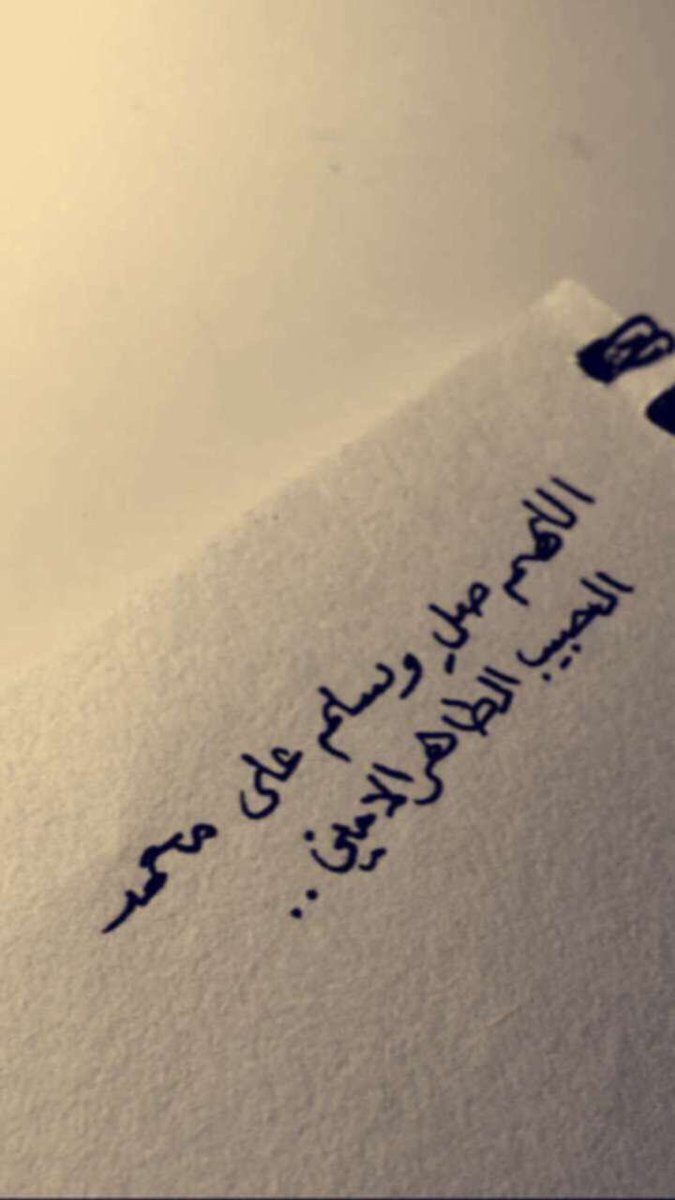 اللهم صلِ وسلم على محمد
الحبيب الطاهر الامين ..